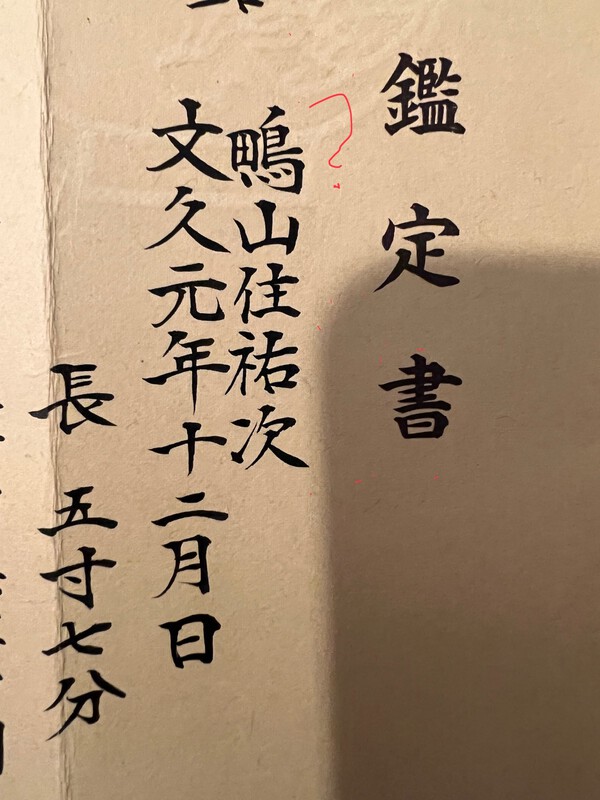 鑑定書
?
鴫山住祐次
文久元年十二月日
長 五寸七分